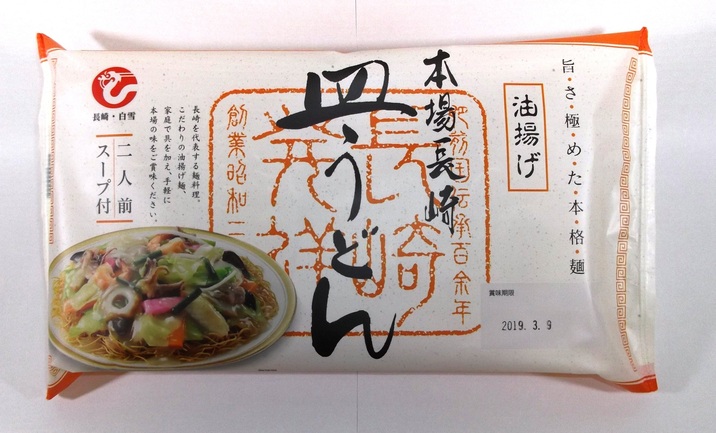 旨・さ・極・め・た・本・格・麺
油揚げ
本場長崎
皿うどん
肥前国伝承百余年
長崎
発祥
創業昭和
長崎を代表する麺料理。
こだわりの油揚げ麺、
家庭で具を加え、手軽に
本場の味をご賞味ください。
長崎・白雪
二人前
スープ付
賞味期限
2019. 3. 9